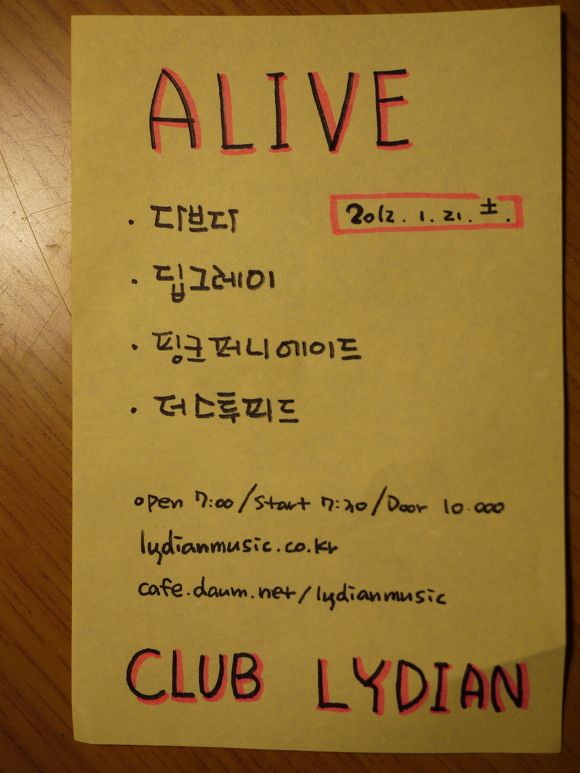 ALIVE
2012. 1. 21. 土.
· 다브다
· 딥그레이
· 핑크퍼니에이드
· 더스투피드
open 7:00/Start 7:30/Door 10.000
lydianmusic.co.kr
cafe.daum.net/lydianmusic
CLUB LYDIAN